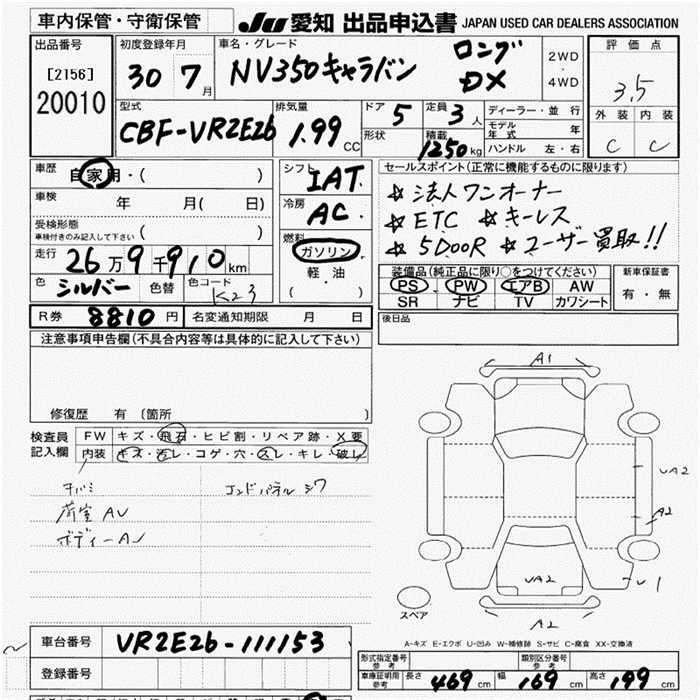 車内保管・守衛保管 JU 愛知 出品申込書 JAPAN USED CAR DEALERS ASSOCIATION
出品番号 初度登録年月 車名・グレード ロング 2WD 評価点
[2156] 30 7月 NV350キャラバン DX 4WD 3.5
20010
型式 排気量 ドア 5 定員 3人 ディーラー・並行 外装 内装
CBF-VR2E26 1.99CC 形状 積載 1250kg モデル年式 年 C C
ハンドル 左・右
車歴 自家用・( ) シフト IAT セールスポイント(正常に機能するものに限ります)
車検 年 月( 日) 冷房 AC ☆法人ワンオーナー
受検形態 ☆ETC ☆キーレス
車検付きのみ記入して下さい ( ) 燃料 ☆5DOOR ☆ユーザー買取!!
走行 26万9千910km ガソリン 装備品(純正品に限り○をつけてください) 新車保証書
色 シルバー 色替 色コード K23 軽・油 PS PW エアB AW 有・無
( ) SR ナビ TV カワシート
R券 8810円 名変通知期限 月 日 後日品
注意事項申告欄(不具合内容等は具体的に記入して下さい)
A1
修復歴 有 (箇所 )
検査員 FW キズ・飛石・ヒビ割・リペア跡・X要
記入欄 内装 キズ・汚レ・コゲ・穴・スレ・キレ・破レ
UA2
荷室AU A2
ボディーAU
UA2 U1
スペア
A2
車台番号 VR2E26-111153 A-キズ E-エクボ U-凹み W-補修跡 S-サビ C-腐食 XX-交換済
登録番号 型式指定番号 参考 類別区分番号 参考
車庫証明用 参考 長さ 469cm 幅 169cm 高さ 199cm